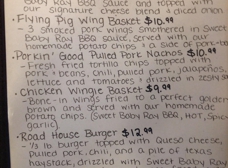 Baby Ray BBQ sauce and topped with
our signature cheese blend & diced onion
-Flying Pig Wing Basket $10.99
- 3 smoked pork wings smothered in Sweet
Baby Ray BBQ sauce, served with our
homemade potato chips + a side of pork+b
-Porkin' Good Pulled Pork Nachos $10.99
- Fresh fried tortilla chips topped with
pork + beans, chili, pulled pork, jalapeños,
lettuce and tomatoes, drizzled in zesty s
-Chicken Wingie Basket $9.99
- Bone-in wings fried to a perfect golden
brown and served with our homemade
potato chips. (Sweet Baby Ray BBQ, HOT, Spicy
garlic)
-Road House Burger $12.99
- 1/3 lb burger topped with Queso cheese,
Pulled pork, chili, and a pile of texas
haystack, drizzled with Sweet Baby Ray